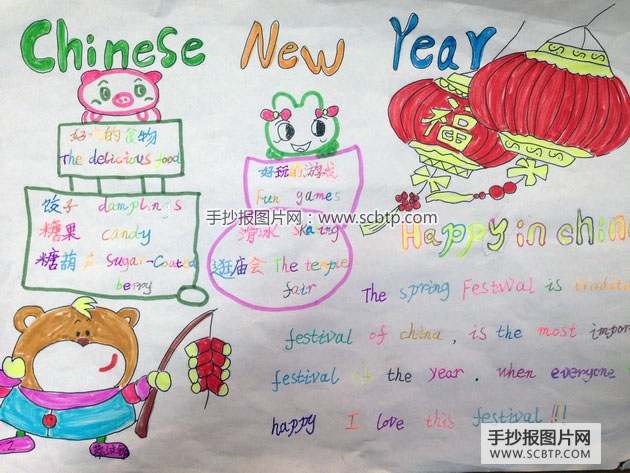 Chinese New Year
福
好吃的食物
The delicious food
好玩的游戏
Fun games
饺子 damplings
糖果 candy
糖葫芦 Sugar-Coated
berry
滑冰 skating
逛庙会 The temple
fair
手抄报图片网：www.scbtp.com
Happy in china
The spring Festival is traditi
festival of china, is the most impor
festival of the year. when everyone
happy I love this festival!!!
手抄报图片网
WWW.SCBTP.COM